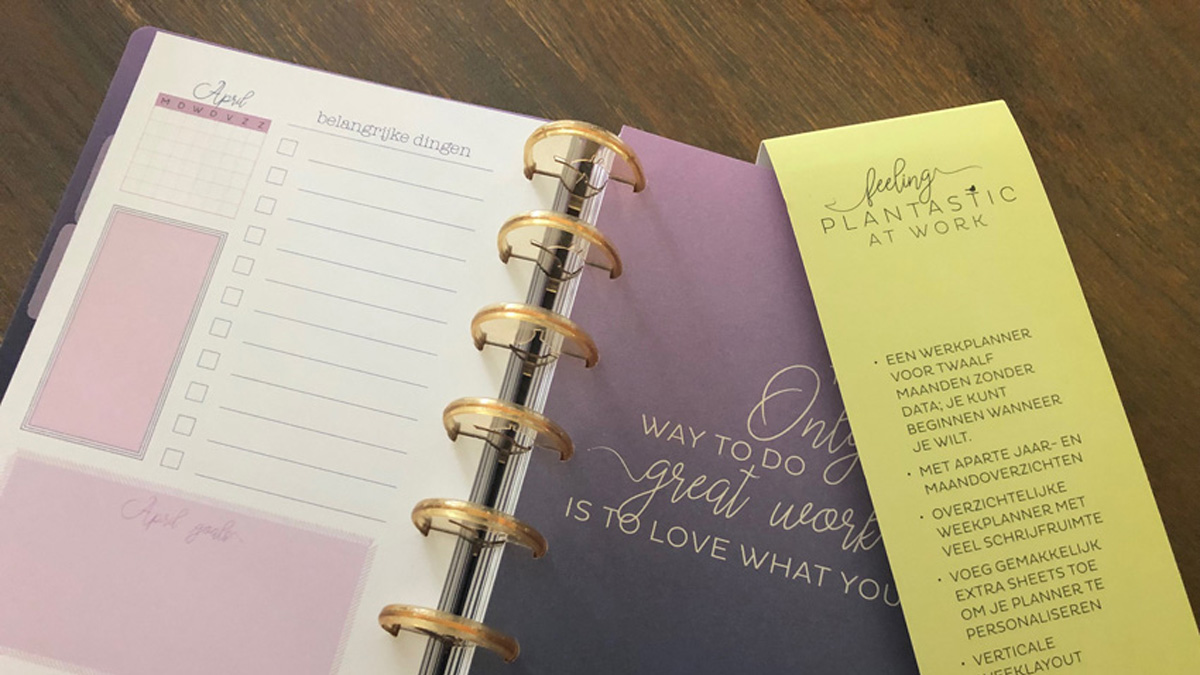 April
M D W D V Z Z
belangrijke dingen
April goals
Only
WAY TO DO
great work
IS TO LOVE WHAT YOU
feeling
PLANTASTIC
AT WORK
• EEN WERKPLANNER
VOOR TWAALF
MAANDEN ZONDER
DATA; JE KUNT
BEGINNEN WANNEER
JE WILT.
• MET APARTE JAAR- EN
MAANDOVERZICHTEN
• OVERZICHTELIJKE
WEEKPLANNER MET
VEEL SCHRIJFRUIMTE
• VOEG GEMAKKELIJK
EXTRA SHEETS TOE
OM JE PLANNER TE
PERSONALISEREN
• VERTICALE
WEEKLAYOUT